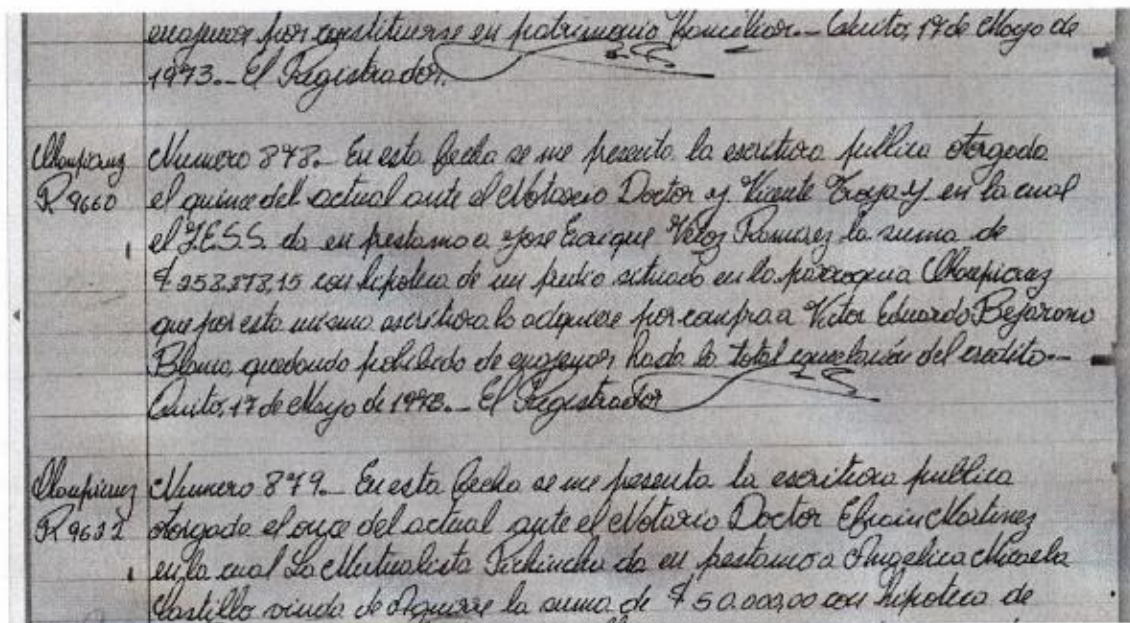 enajenar por constituirse en patrimonio familiar.- Quito, 17 de Mayo de
1973.- El Registrador.
Chaupicruz
R 9660
Numero 878.- En esta fecha se me presento la escritura publica otorgada
el quince del actual ante el Notario Doctor J. Vicente Troya J. en la cual
el I.E.S.S. da en prestamo a Jose Enrique Veloz Ramirez la suma de
con hipoteca de un predio situado en la parroquia Chaupicruz
que por esta misma escritura lo adquiere por compra a Victor Eduardo Bejarano
quedando prohibido de enajenar hasta la total cancelación del credito.-
Quito, 17 de Mayo de 1973.- El Registrador
Chaupicruz
R 9622
Numero 879.- En esta fecha se me presenta la escritura publica
otorgada el once del actual ante el Notario Doctor Efrain Martinez
en la cual La Mutualista Pichincha da en prestamo a Angelica Micaela
Castillo viuda de Aguirre la suma de $50.000,00 con hipoteca de